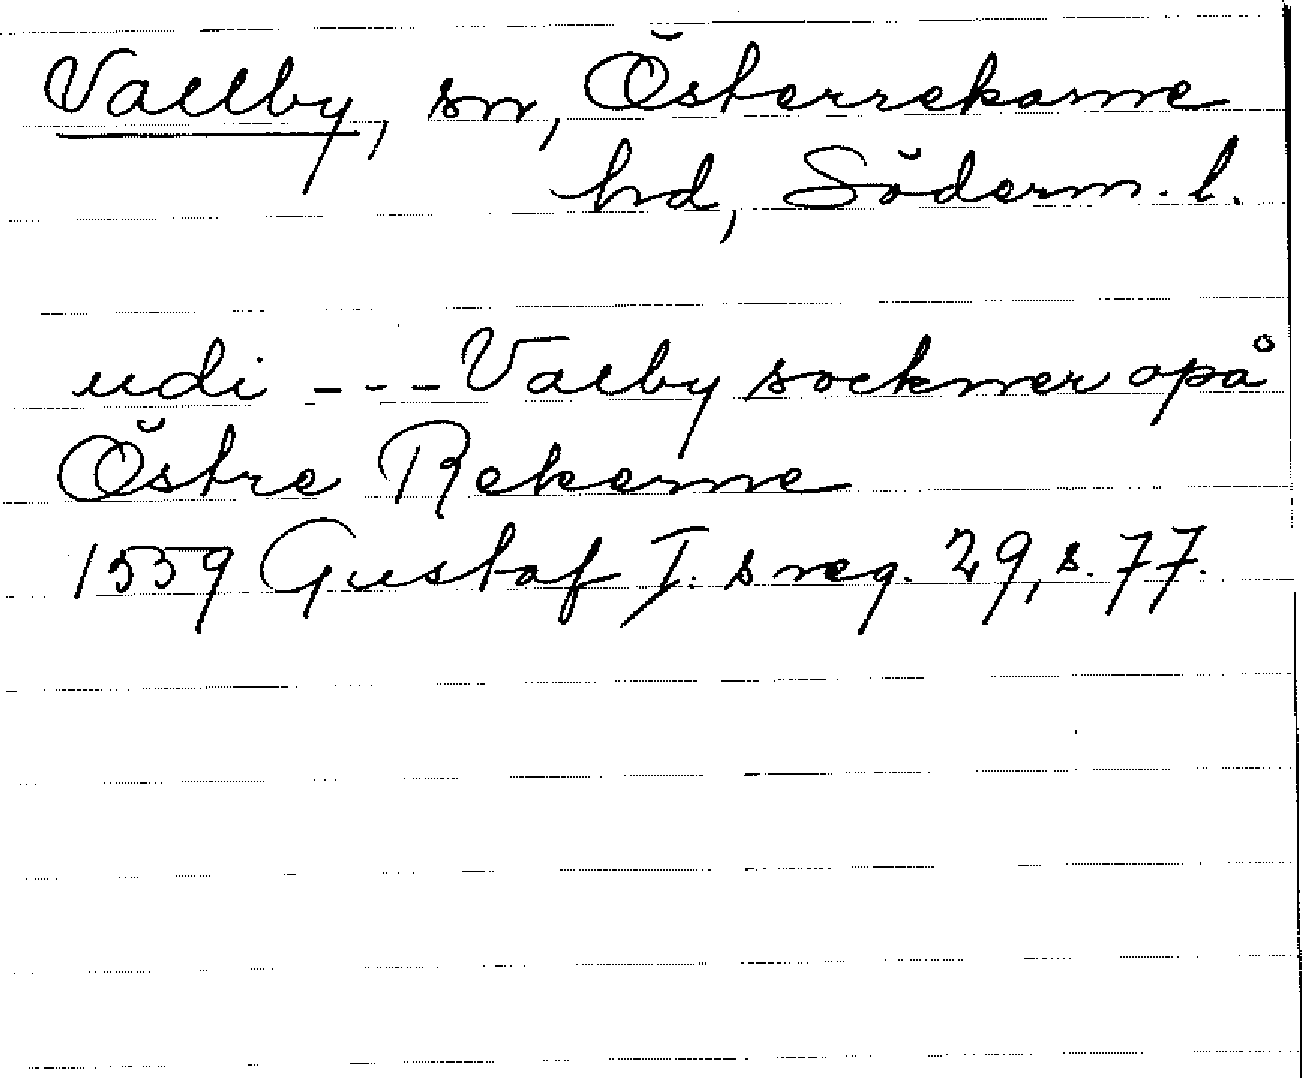 Vallby, sn, Österrekarne
hd, Söderm. l.
udi --- Valby sockner opå
Östre Rekerne
1559 Gustaf I. s reg. 29, s. 77.